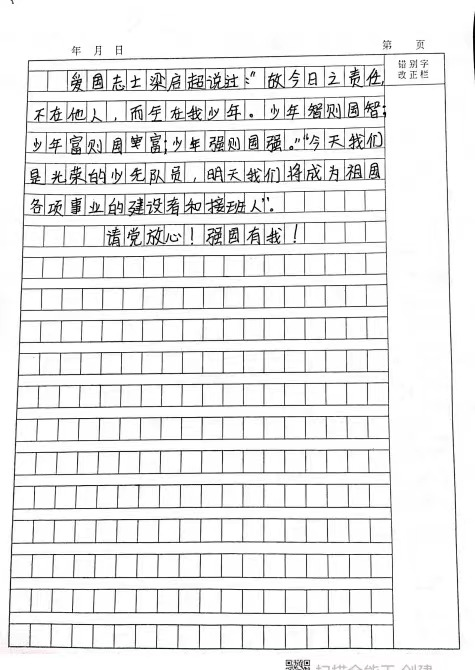 年 月 日
第 页
错别字
改正栏
爱国志士梁启超说过:"故今日之责任,
不在他人,而全在我少年。少年智则国智;
少年富则国富;少年强则国强。""今天我们
是光荣的少先队员,明天我们将成为祖国
各项事业的建设者和接班人"。
请党放心!强国有我!